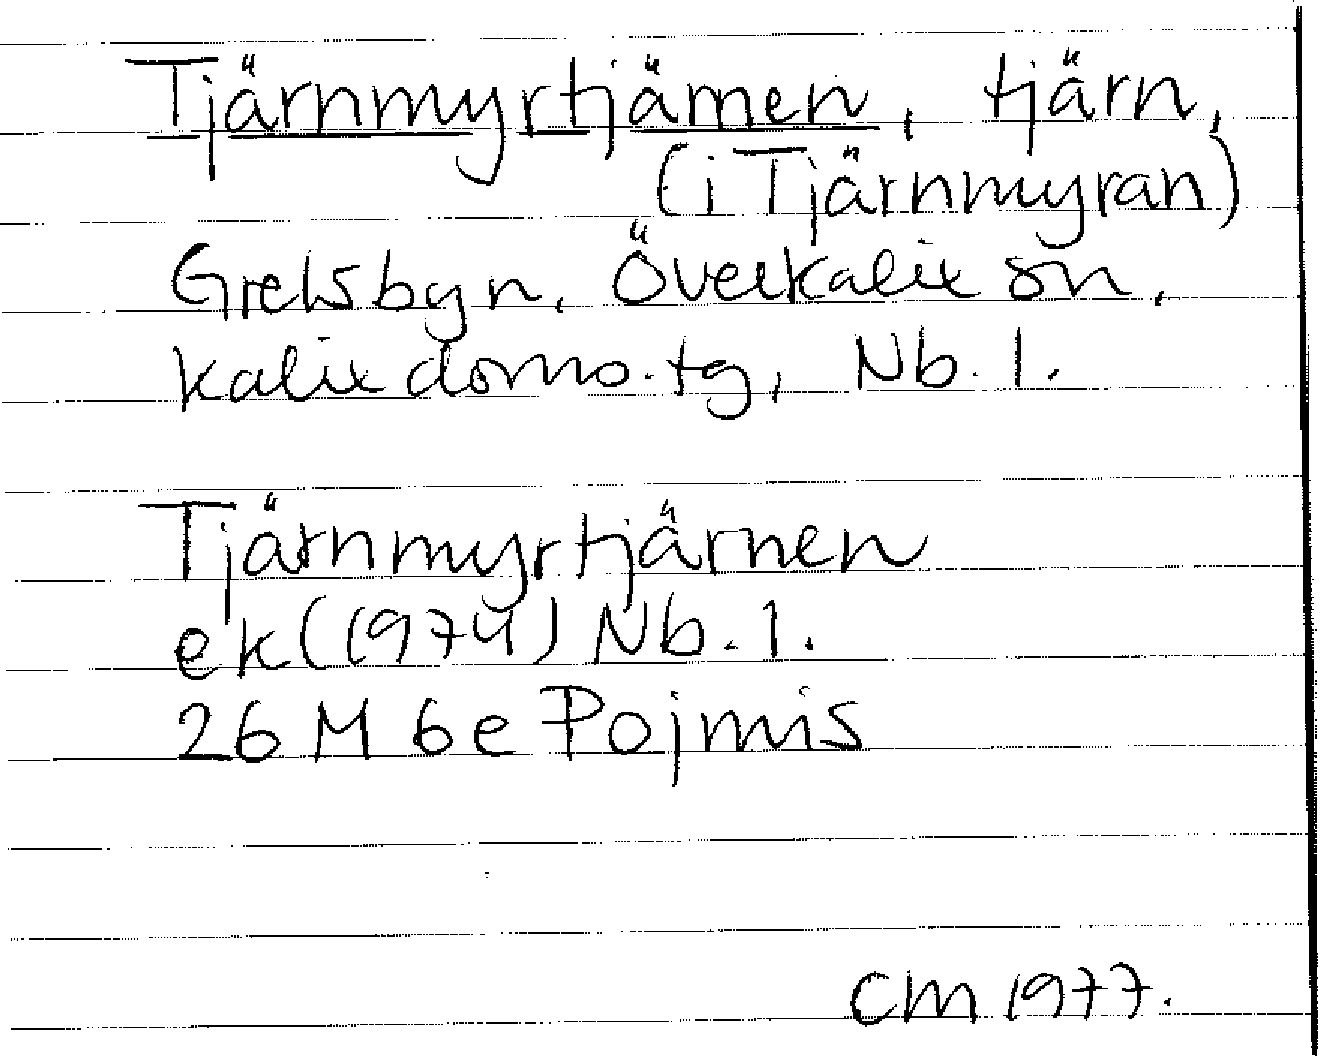 Tjärnmyrtjärnen, tjärn,
(i Tjärnmyran)
Grelsbyn, Överkalix sn,
Kalix doms. tg, Nb. l.
Tjärnmyrtjärnen
ek (1974) Nb. l.
26 M 6e Pojmis
CM 1977.